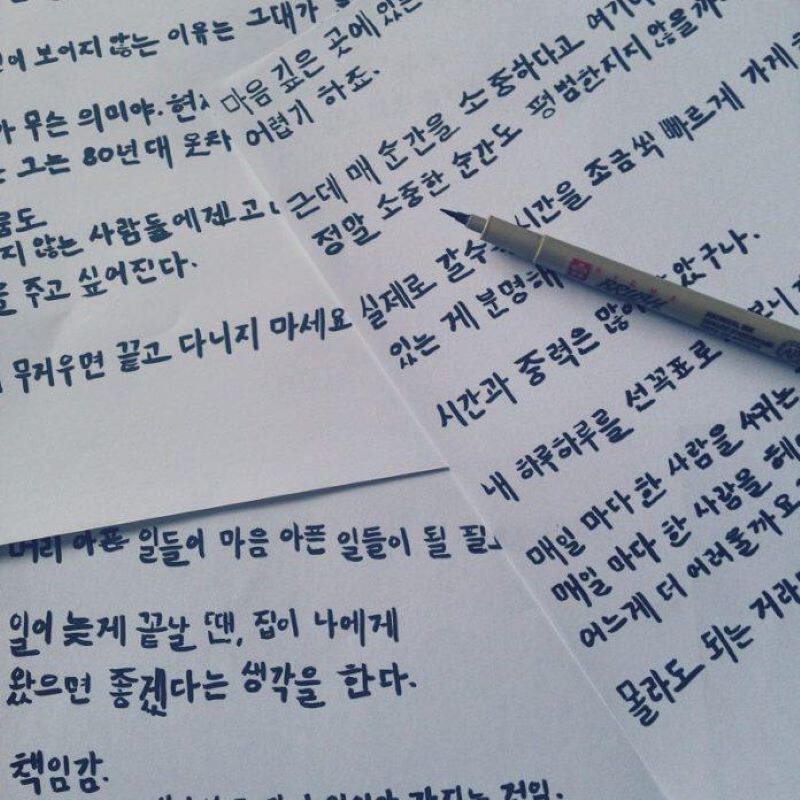 보이지 않는 이유는 그대가
무슨 의미야.
그는 80년대 옷차
지 않는 사람들에겐
주고 싶어진다.
무거우면 끌고 다니지 마세요
마음 깊은 곳에 있는
어렵기 하죠.
근데 매 순간을 소중하다고 여기
정말 소중한 순간도 평범한지지 않을까
실제로 갈수 시간을 조금씩 빠르게 가게
있는 게 분명해 았구나.
시간과 중력은 많
내 하루하루를 선꼭표로 보니
매일 마다 한 사람을 사귀는
매일 마다 한 사람을 헤
어느게 더 어려울까요
몰라도 되는 거라
머리 아픈 일들이 마음 아픈 일들이 될 필
일이 늦게 끝날 땐, 집이 나에게
왔으면 좋겠다는 생각을 한다.
책임감.
가지는 것임.
SAKURA
PIGMA